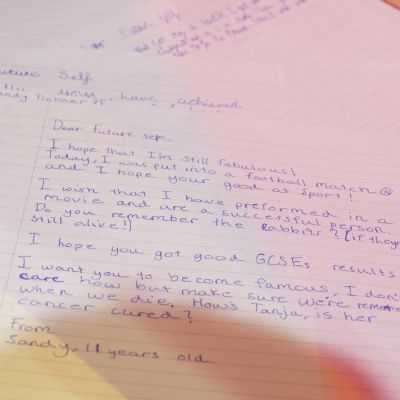 Dear Future
Future Self
have achieved
Dear future self.
I hope that I'm still fabulous!
Today, I was put into a football match
and I hope your good at sport!
I wish that I have preformed in a
movie and are a successful person.
Do you remember the Rabbits? (if they
still alive!)
I hope you got good GCSEs results
I want you to become famous, I don't
care how but make sure we're remembe
when we die. How's Tanja, is her
cancer cured?
From
Sandy, 11 years old.